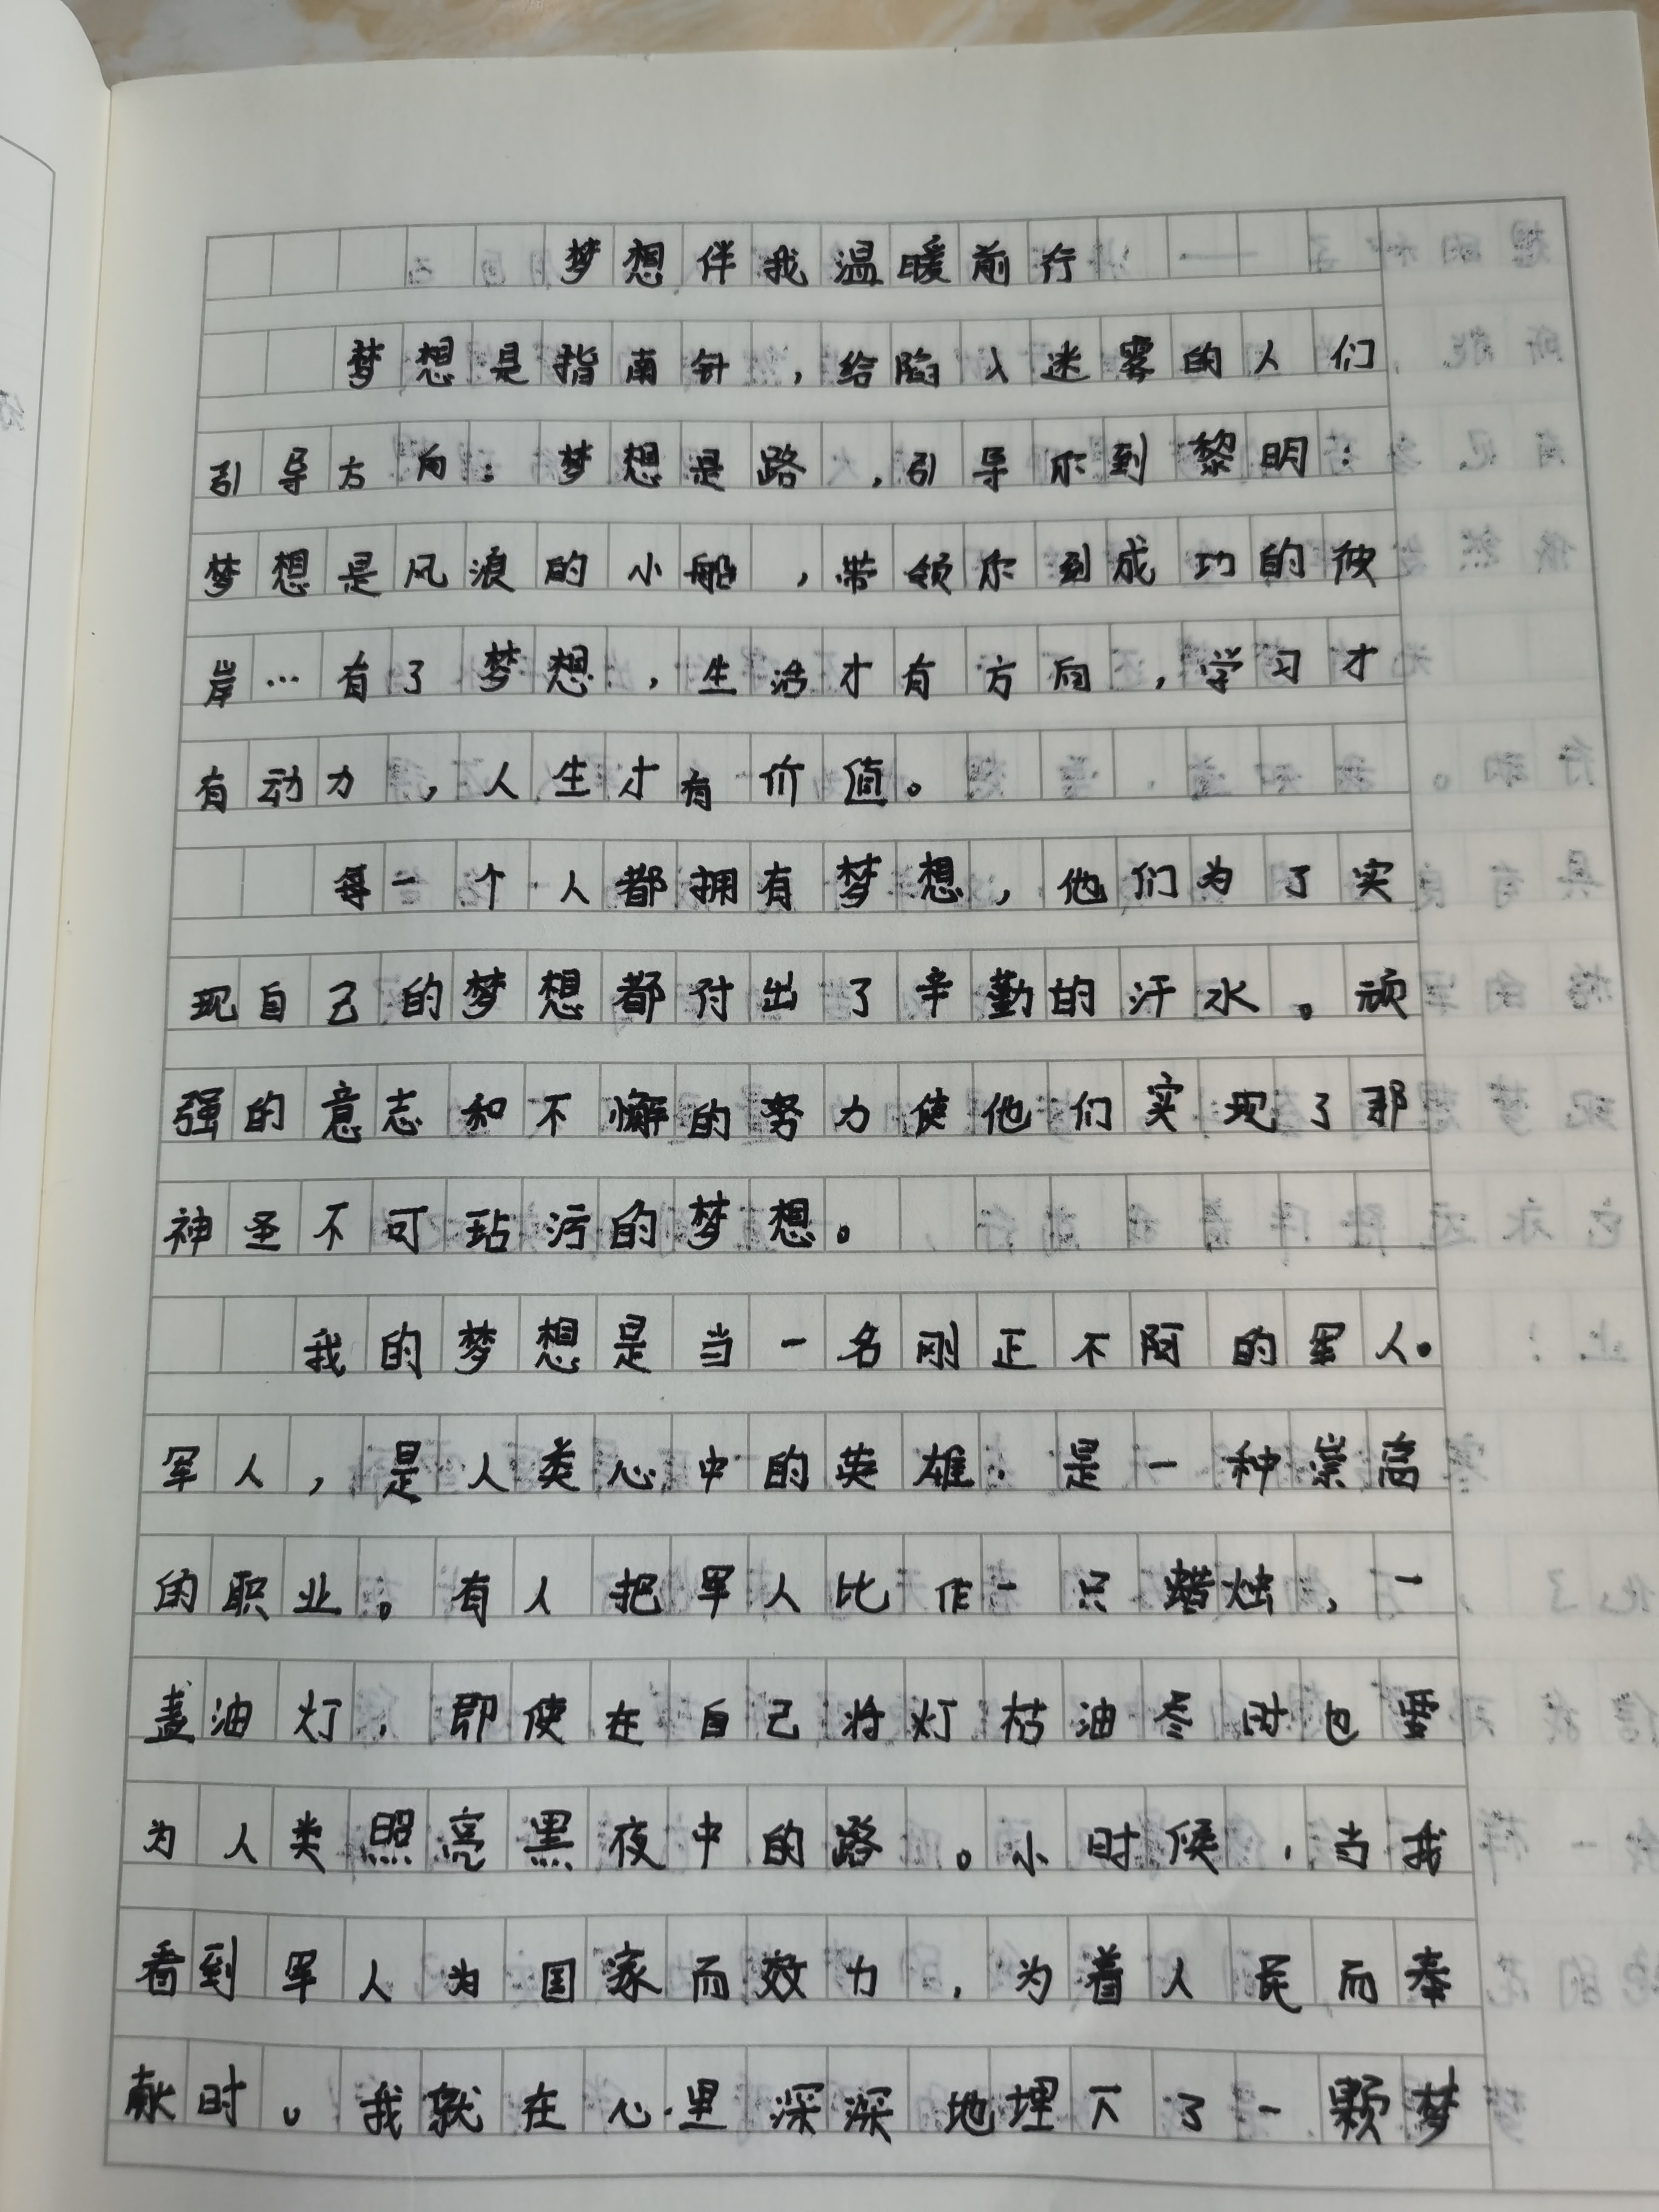 梦想伴我温暖前行
梦想是指南针，给陷入迷雾的人们
引导方向；梦想是路，引导你到黎明；
梦想是风浪的小船，带领你到成功的彼
岸…有了梦想，生活才有方向，学习才
有动力，人生才有价值。
每一个人都拥有梦想，他们为了实
现自己的梦想都付出了辛勤的汗水。顽
强的意志和不懈的努力使他们实现了那
神圣不可玷污的梦想。
我的梦想是当一名刚正不阿的军人。
军人，是人类心中的英雄，是一种崇高
的职业。有人把军人比作一只蜡烛，一
盏油灯，即使在自己将灯枯油尽时也要
为人类照亮黑夜中的路。小时候，当我
看到军人为国家而效力，为着人民而奉
献时。我就在心里深深地埋下了一颗梦